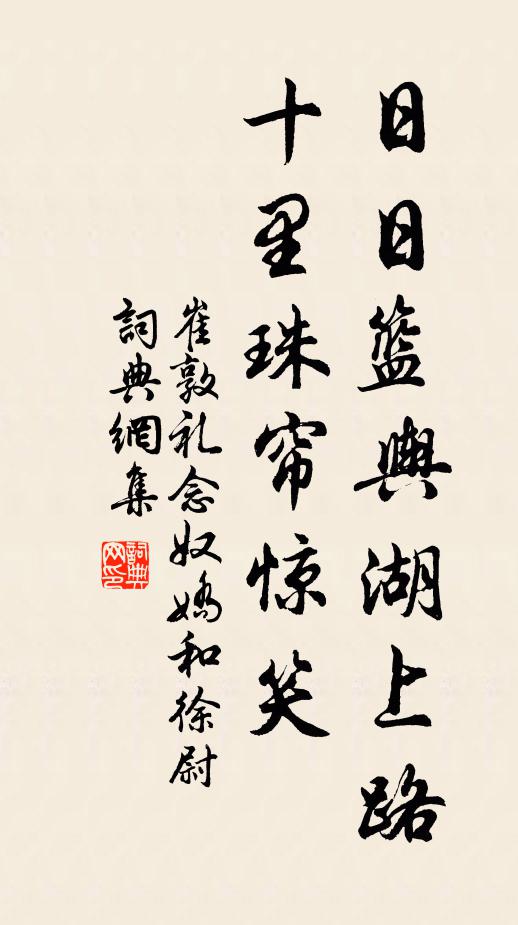 日日籃輿湖上路
十里珠帘惊笑
崔敦礼念奴嬌和徐尉
詞典網集
詞典网印